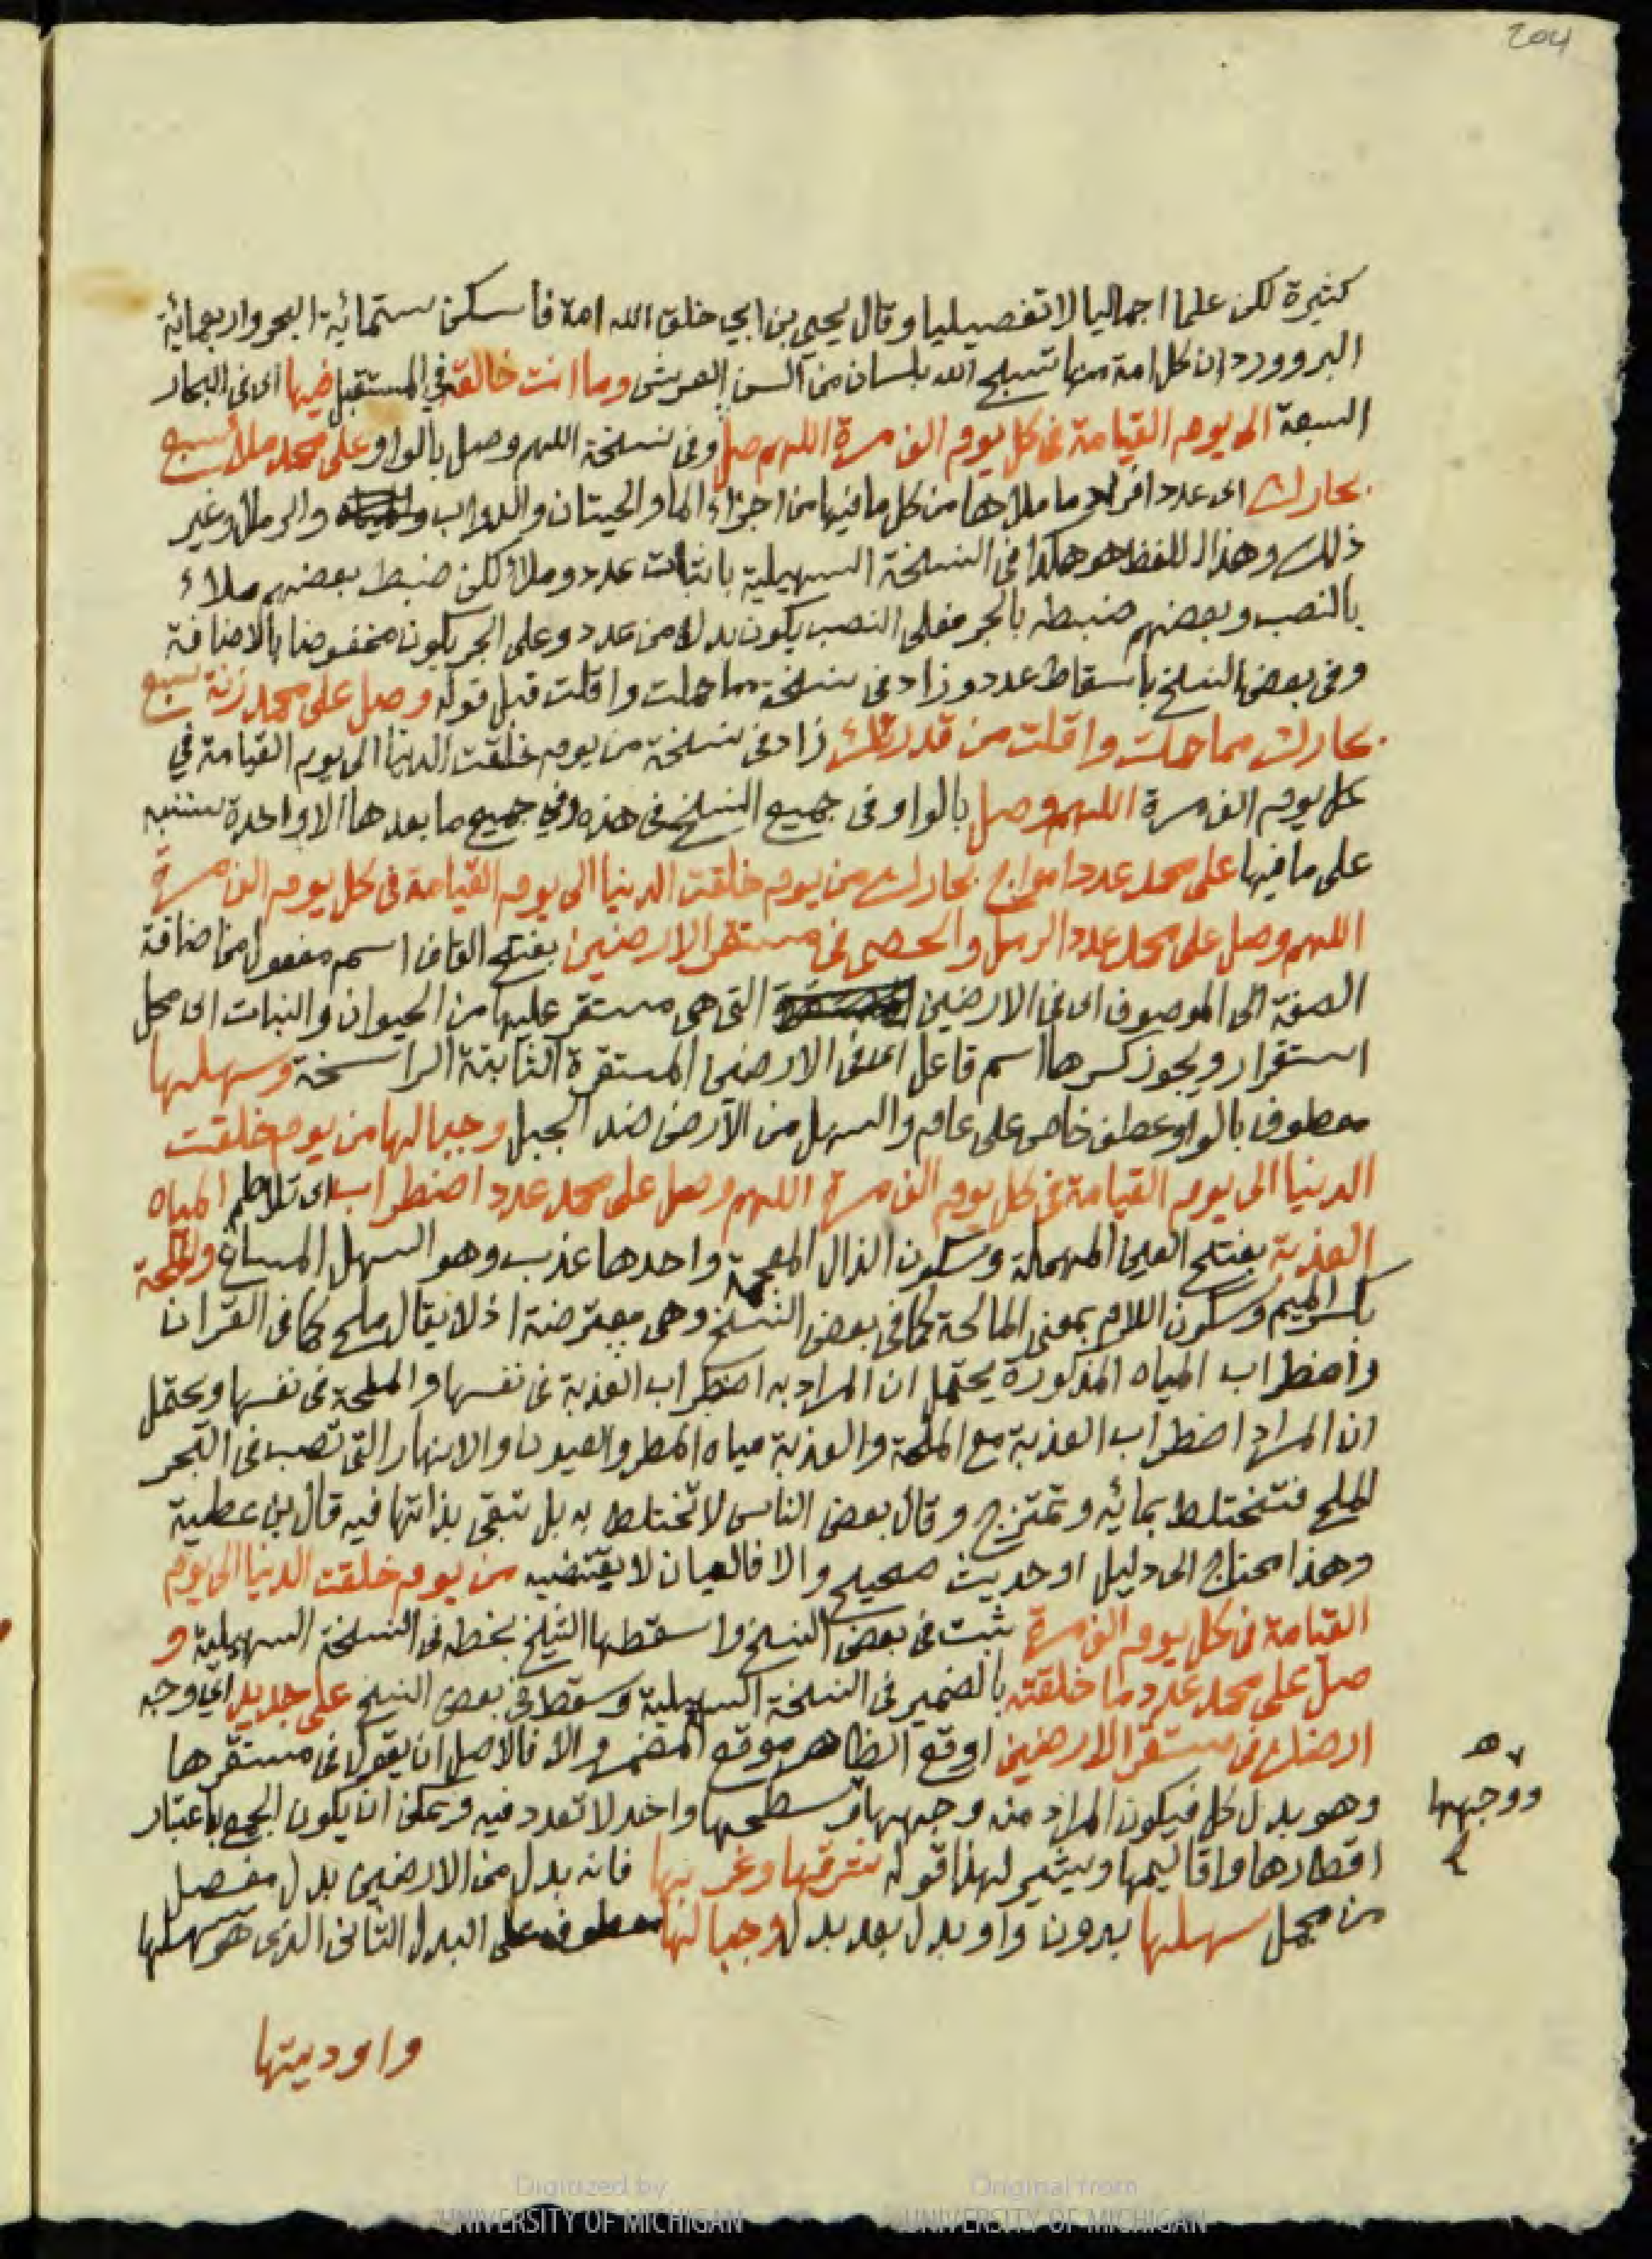 204
كثيرة لكن علما اجماليا لا تفصيليا وقال يحيى بن ابي خلق الله امة فاسكن ستمائة البحر واربعمائة
البر وورد ان كل امة منها تسبح الله بلسان من ألسن العرش وما انت خالقه في المستقبل فيها اى فى البحار
السبعة الى يوم القيامة فى كل يوم الف مرة اللهم صل وفى نسخة اللهم وصل بالواو على محمد ملأ سبع
بحارك اى عدد افراد ما ملأها من كل ما فيها من اجزاء الما والحيتان والدواب والرمل وغير
ذلك وهذا اللفظ هو هكذا فى النسخة السهيلية باثبات عدد وملأ لكن ضبط بعضهم ملاء
بالنصب وبعضهم ضبطه بالجر فعلى النصب يكون بدلا من عدد وعلى الجر يكون مخفوضا بالاضافة
وفى بعض النسخ باسقاط عدد وزاد فى نسخة مما حملت واقلت قبل قوله وصل على محمد زنة سبع
بحارك مما حملت واقلت من قدرتك زاد فى نسخة من يوم خلقت الدنيا الى يوم القيامة في
كل يوم الف مرة اللهم وصل بالواو فى جميع النسخ فى هذه وفي جميع ما بعدها الا واحدة سننبه
على ما فيها على محمد عدد امواج بحارك من يوم خلقت الدنيا الى يوم القيامة فى كل يوم الف مرة
اللهم وصل على محمد عدد الرمل والحصى فى مستقر الارضين بفتح القاف اسم مفعول من اضافة
الصفة الى الموصوف اى فى الارضين التى هى مستقر عليها من الحيوان والنبات اى محل
استقرار ويجوز كسرها اسم فاعل اى فى الارضى المستقرة الثابتة الراسخة وسهلها
معطوف بالواو عطف خاص على عام والسهل من الأرض ضد الجبل وجبالها من يوم خلقت
الدنيا الى يوم القيامة فى كل يوم الف مرة اللهم وصل على محمد عدد اضطراب اى تلاطم المياه
العذبة بفتح العين المهملة وسكون الذال المعجمة واحدها عذب وهو السهل المساغ والملحة
بكسر الميم وسكون اللام بمعنى المالحة كما فى بعض النسخ وهى معترضة اذ لا يقال ملح كما فى القرآن
واضطراب المياه المذكورة يحتمل ان المراد به اضطراب العذبة فى نفسها والملحة فى نفسها ويحتمل
ان المراد اضطراب العذبة مع الملحة والعذبة مياه المطر والعيون والانهار التى تصب فى البحر
الملح فتختلط بمائه وتمتزج وقال بعض الناس لا تختلط به بل تبقى بذاتها فيه قال بن عطية
وهذا محتاج الى دليل او حديث صحيح والا فالعيان لا يقتضيه من يوم خلقت الدنيا الى يوم
القيامة فى كل يوم الف مرة ثبت فى بعض النسخ واسقطها الشيخ بخطه فى النسخة السهيلية و
صل على محمد عدد ما خلقته بالضمير فى النسخة السهيلية وسقط فى بعض النسخ على جديد اى وجه
ارضك فى مستقر الارضين اوقع الظاهر موقع المضمر والا فالاصل ان يقول فى مستقرها
وهو بدل كل فيكون المراد منه وجهها وسطحها واحد لا تعدد فيه ويمكن ان يكون الجمع باعتبار
ووجهها
اقطارها واقاليمها ويشير لهذا قوله شرقها وغربها فانه بدل من الارضين بدل مفصل
من مجمل سهلها بدون واو بدل بعد بدل وجبالها معطوف على البدل الثانى الذى هو سهلها
واوديتها
Digitized by UNIVERSITY OF MICHIGAN
Original from UNIVERSITY OF MICHIGAN